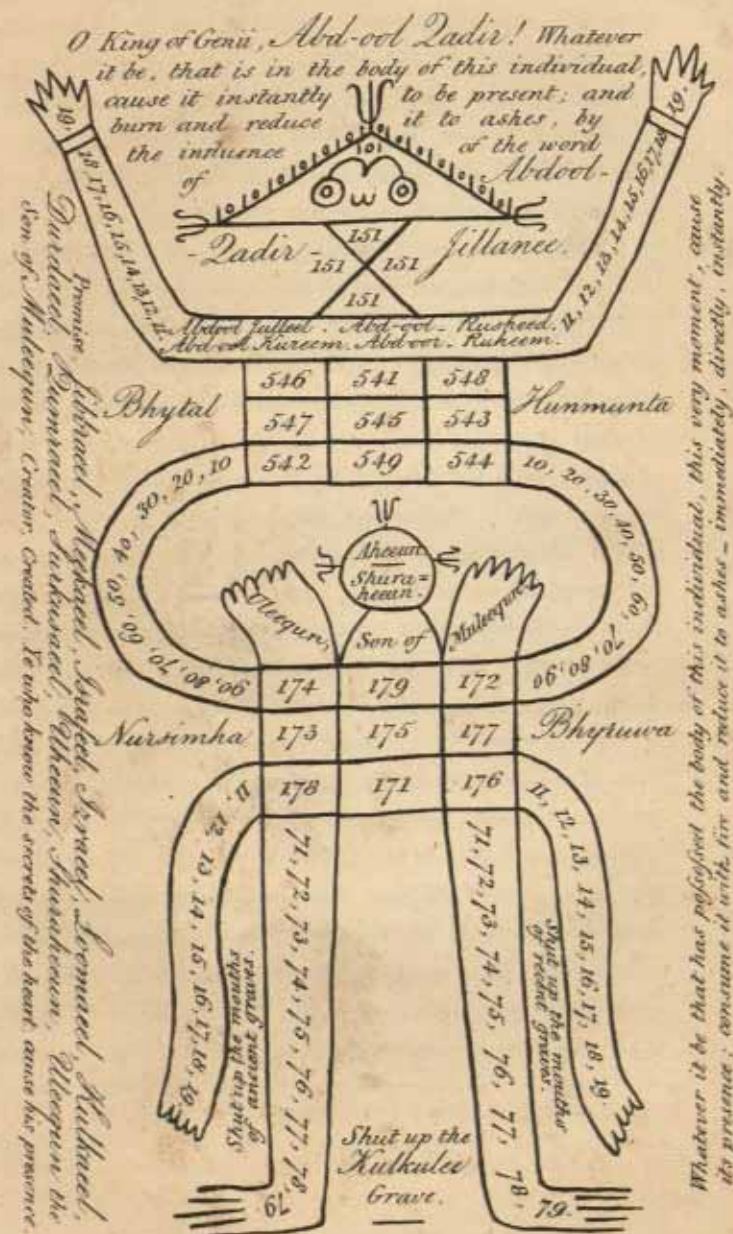 O King of Genii, Abd-ool Qadir! Whatever
it be, that is in the body of this individual,
cause it instantly to be present; and
burn and reduce it to ashes, by
the influence of the word
of Abdool-
101
-Qadir- Jillanee.
151
151 151
151
19.
18, 17, 16, 15, 14, 13, 12, 11
19.
11, 12, 13, 14, 15, 16, 17, 18
Abdool Julleel. Abd-ool- Rusheed.
Abd-ool Kureem. Abd-oor- Ruheem.
Bhytal
Hunmunta
546 541 548
547 545 543
542 549 544
30, 20, 10
40, 50, 60, 70, 80, 90
10, 20, 30, 40, 50, 60, 70, 80, 90
Aheeun
Shura=
heeun.
Uleequn,
Son of
174 179 172
173 175 177
178 171 176
Nursimha
Bhyruwa
11, 12, 13, 14, 15, 16, 17, 18, 19
11, 12, 13, 14, 15, 16, 17, 18, 19
71, 72, 73, 74, 75, 76, 77, 78,
79
71, 72, 73, 74, 75, 76, 77, 78,
79.
Shut up the mouths
of ancient graves.
Shut up the mouths
of recent graves.
Shut up the
Kulkulee
Grave.
Promise Jibbraeel, Meekaeel, Israfeel, Izraeel, Loomaeel, Kulkaeel,
Durdaeel, Dumraeel, Surkusaeel, Uheeun, Shuraheeun, Uleequn the
Son of Muleequn; Creator, Created. Ye who know the secrets of the heart cause his presence.
Whatever it be that has possessed the body of this individual, this very moment, cause
its presence; consume it with fire and reduce it to ashes – immediately, directly, instantly.